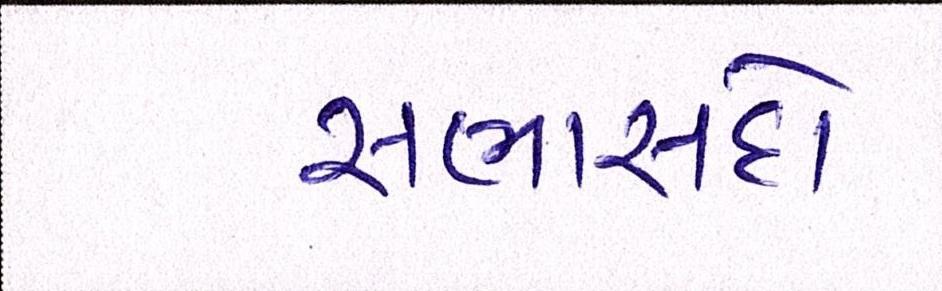 સભાસદો